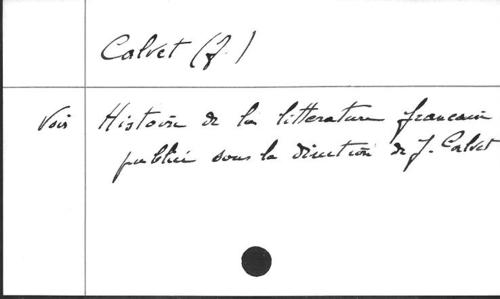 Calvet (J.)
Voir Histoire de la litterature francaise
publiée sous la direction de J. Calvet